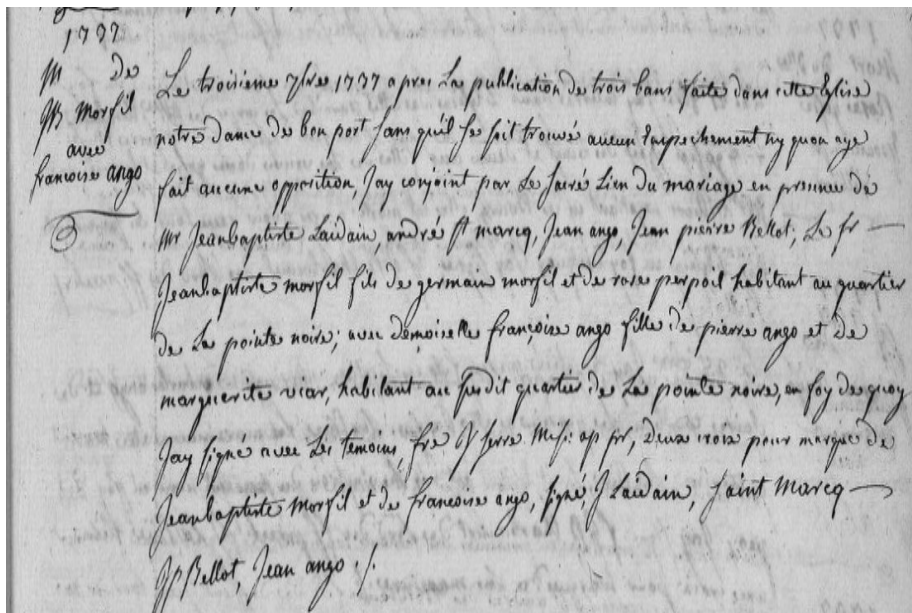 1737
M de
JB Morfil
avec
francoise ango
Le troisieme 7bre 1737 apres La publication de trois bans faite dans cette Eglise
notre dame de bon port sans qu'il se soit trouvé aucun Empechement ny quon aye
fait aucune opposition, Jay conjoint par Le sacré Lien du mariage en presence de
Mr Jeanbaptiste Laidain, andré st marcq, Jean ango, Jean pierre Bellot, Le sr
Jeanbaptiste morfil fils de germain morfil et de rose perpoil habitant au quartier
de La pointe noire; avec demoiselle françoise ango fille de pierre ango et de
marguerite viar, habitant au susdit quartier de La pointe noire, en foy de quoy
Jay signé avec Les temoins, fre ap deux croix pour marque de
Jeanbaptiste Morfil et de francoise ango, signé, J Laidain, saint Marcq
Jp Bellot, Jean ango ./.